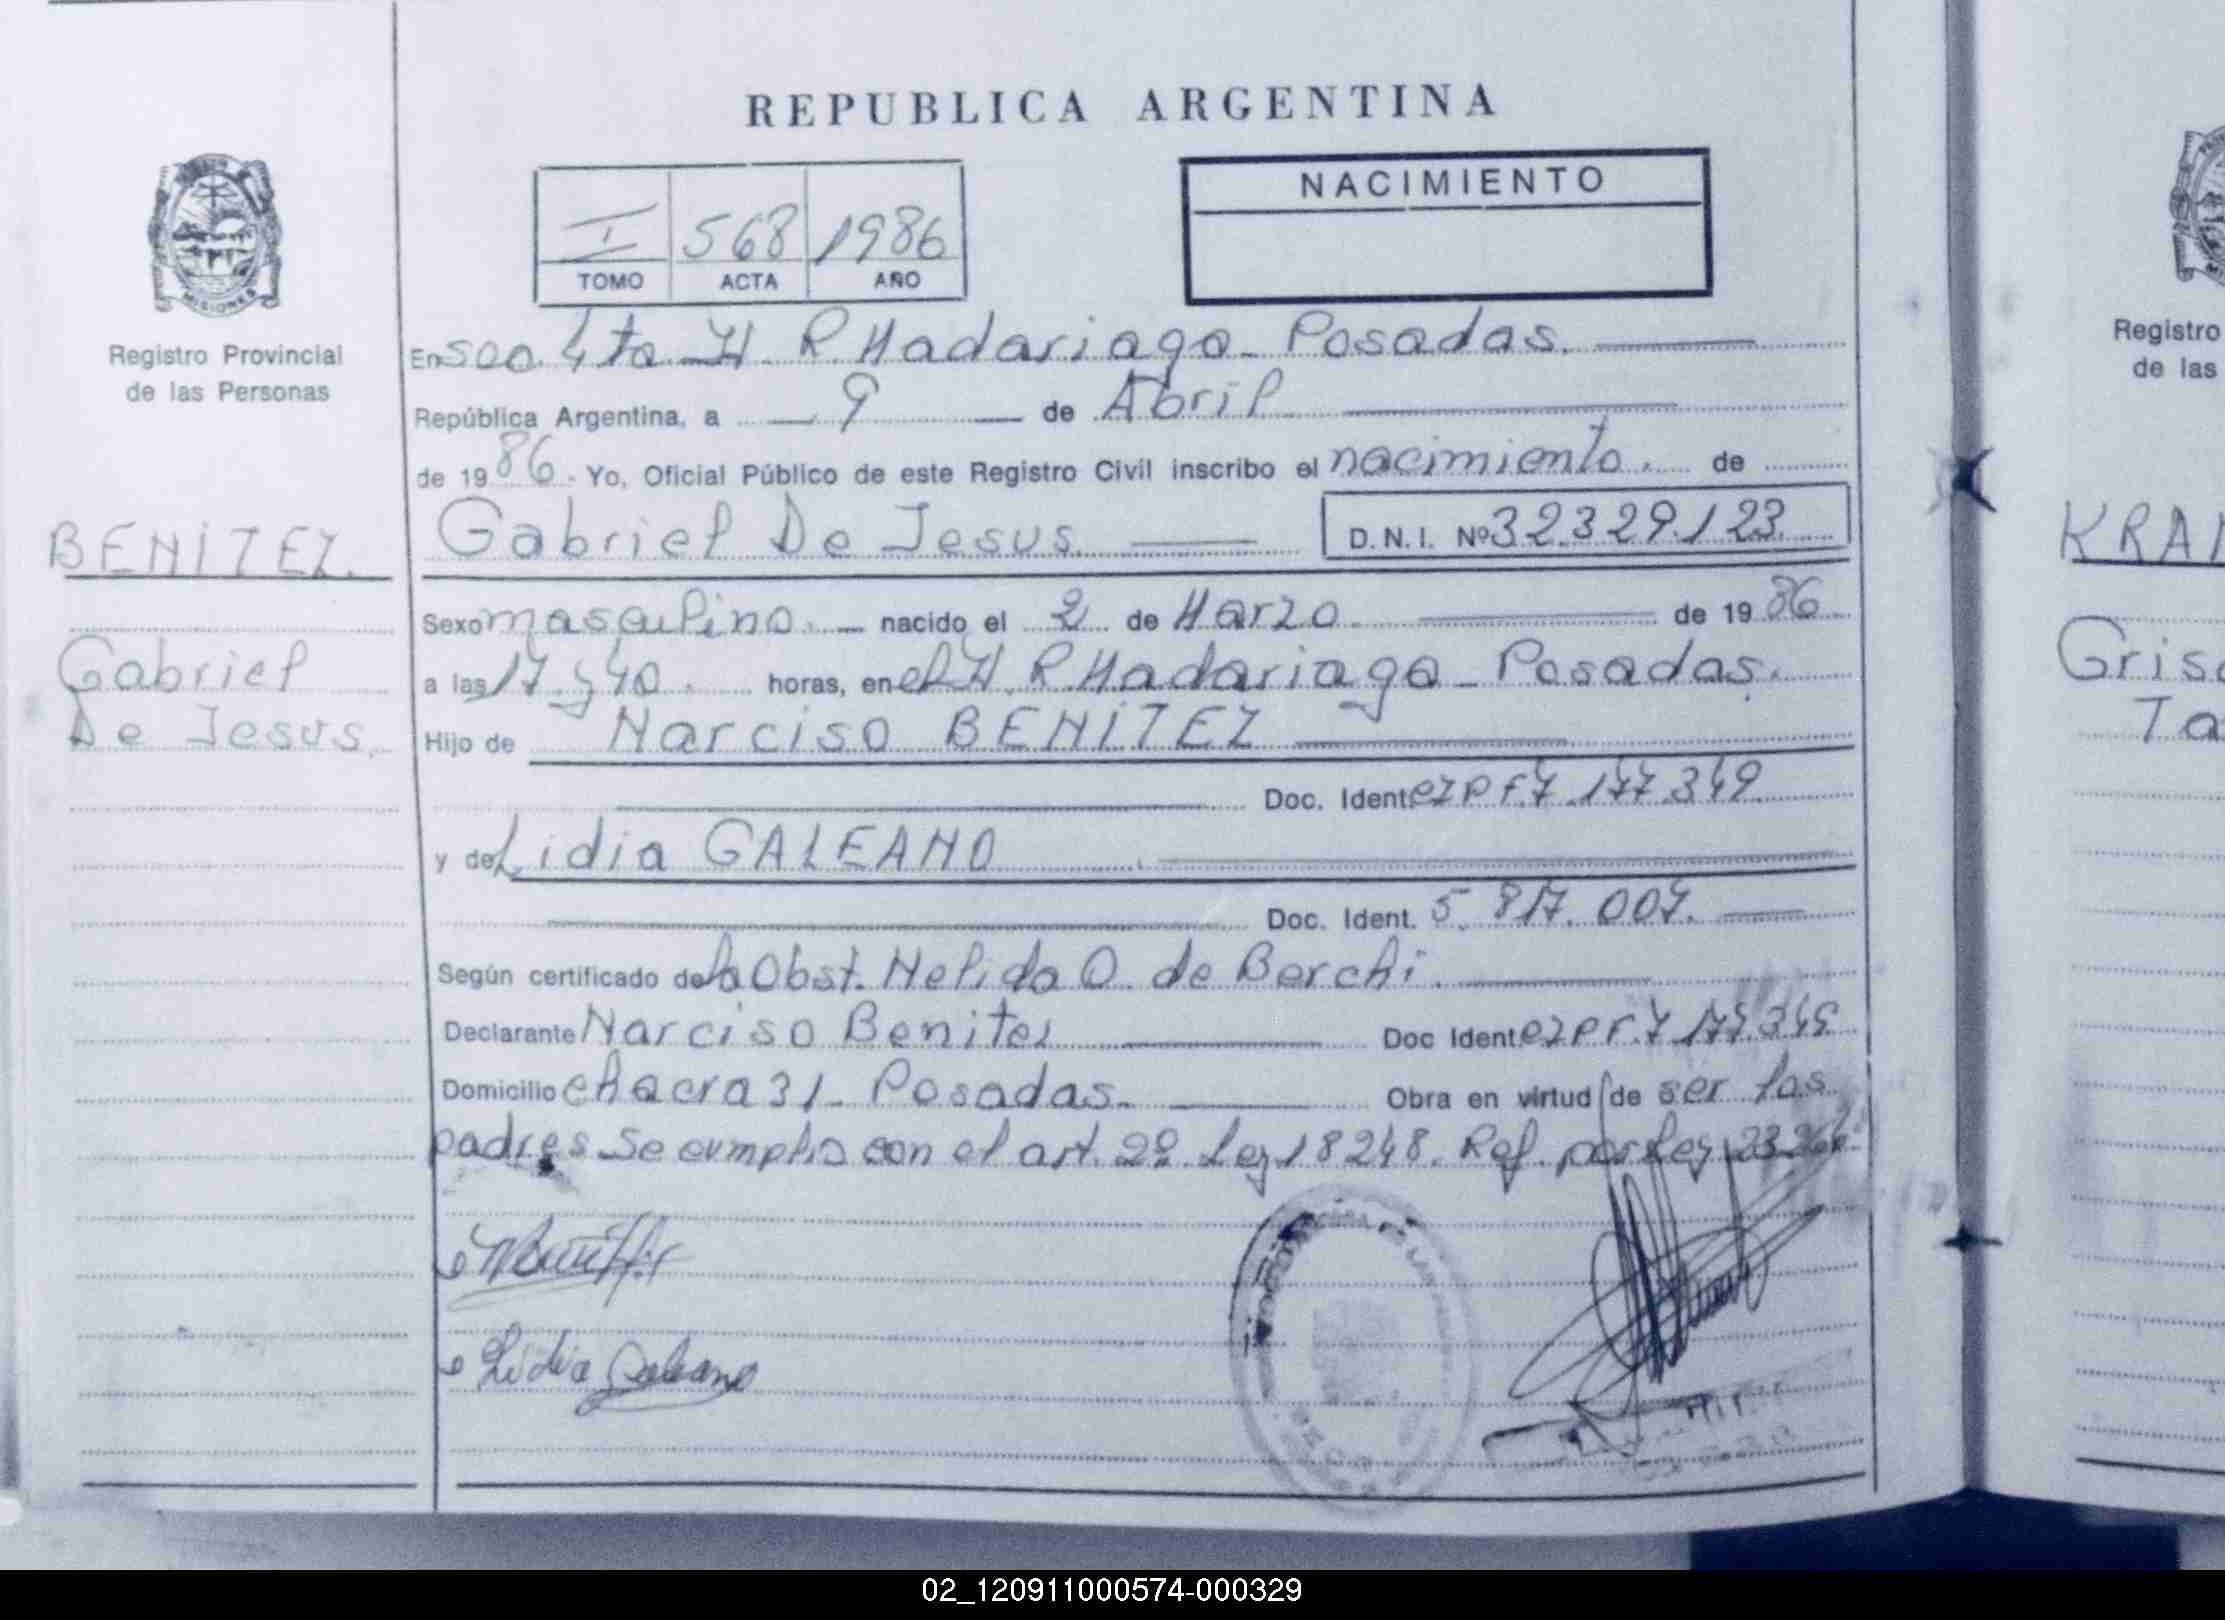 REPUBLICA ARGENTINA
MISIONES
Registro Provincial
de las Personas
I 568 1986
TOMO ACTA AÑO
NACIMIENTO
En Secc. 4ta H. R. Madariaga - Posadas.
República Argentina, a 9 de Abril
de 1986. Yo, Oficial Público de este Registro Civil inscribo el nacimiento. de
BENÍTEZ.
Gabriel
De Jesus.
Gabriel De Jesus D.N.I. Nº 32.329.123.
Sexo masculino. nacido el 2 de Marzo. de 1986
a las 17 y 40. horas, en el H. R. Madariaga - Posadas.
Hijo de Narciso BENÍTEZ
Doc. Ident. 7.177.349
y de Lidia GALEANO
Doc. Ident. 5.817.007.
Según certificado de la Obst. Nelida O. de Berchi.
Declarante Narciso Benitez Doc Ident.
Domicilio chacra 31 - Posadas. Obra en virtud de ser los
padres Se cumplio con el art. 2º Ley 18248. Ref. por Ley
Lidia Galeano
Registro
de las
KRA
Gris
Ta
02_120911000574-000329